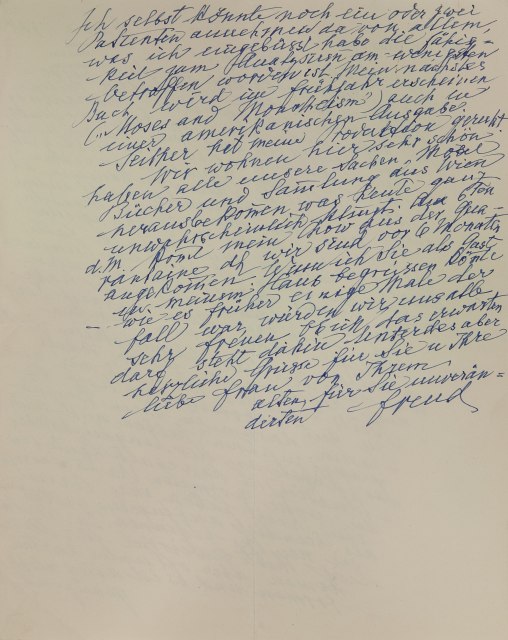 Ich selbst könnte noch ein oder zwei
Patienten annehmen da von allem,
was ich eingebüsst habe die Fähig-
keit zum Analysieren am wenigsten
betroffen worden ist. Mein nächstes
Buch wird im Frühjahr erscheinen
("Moses and Monotheism) auch in
einer amerikanischen Ausgabe.
Seither hat meine geruht
Wir wohnen hier sehr schön
haben alle unsere Sachen, Möbel
Bücher und Sammlung aus Wien
herausbekommen, was heute ganz
unwahrscheinlich klingt. Am 6ten
d. M. kommt mein Chow aus der Qua-
rantaine dh wir sind vor 6 Monaten
angekommen. Wenn ich Sie als Gast
in meinem Haus begrüssen könnte
- wie es früher einige Male der
Fall war, würden wir uns alle
sehr freuen. Ob ich das erwarten
darf steht dahin. Unterdes aber
herzliche Grüsse für Sie u Ihre
liebe Frau von Ihrem
alten, für Sie unverän-
derten Freud